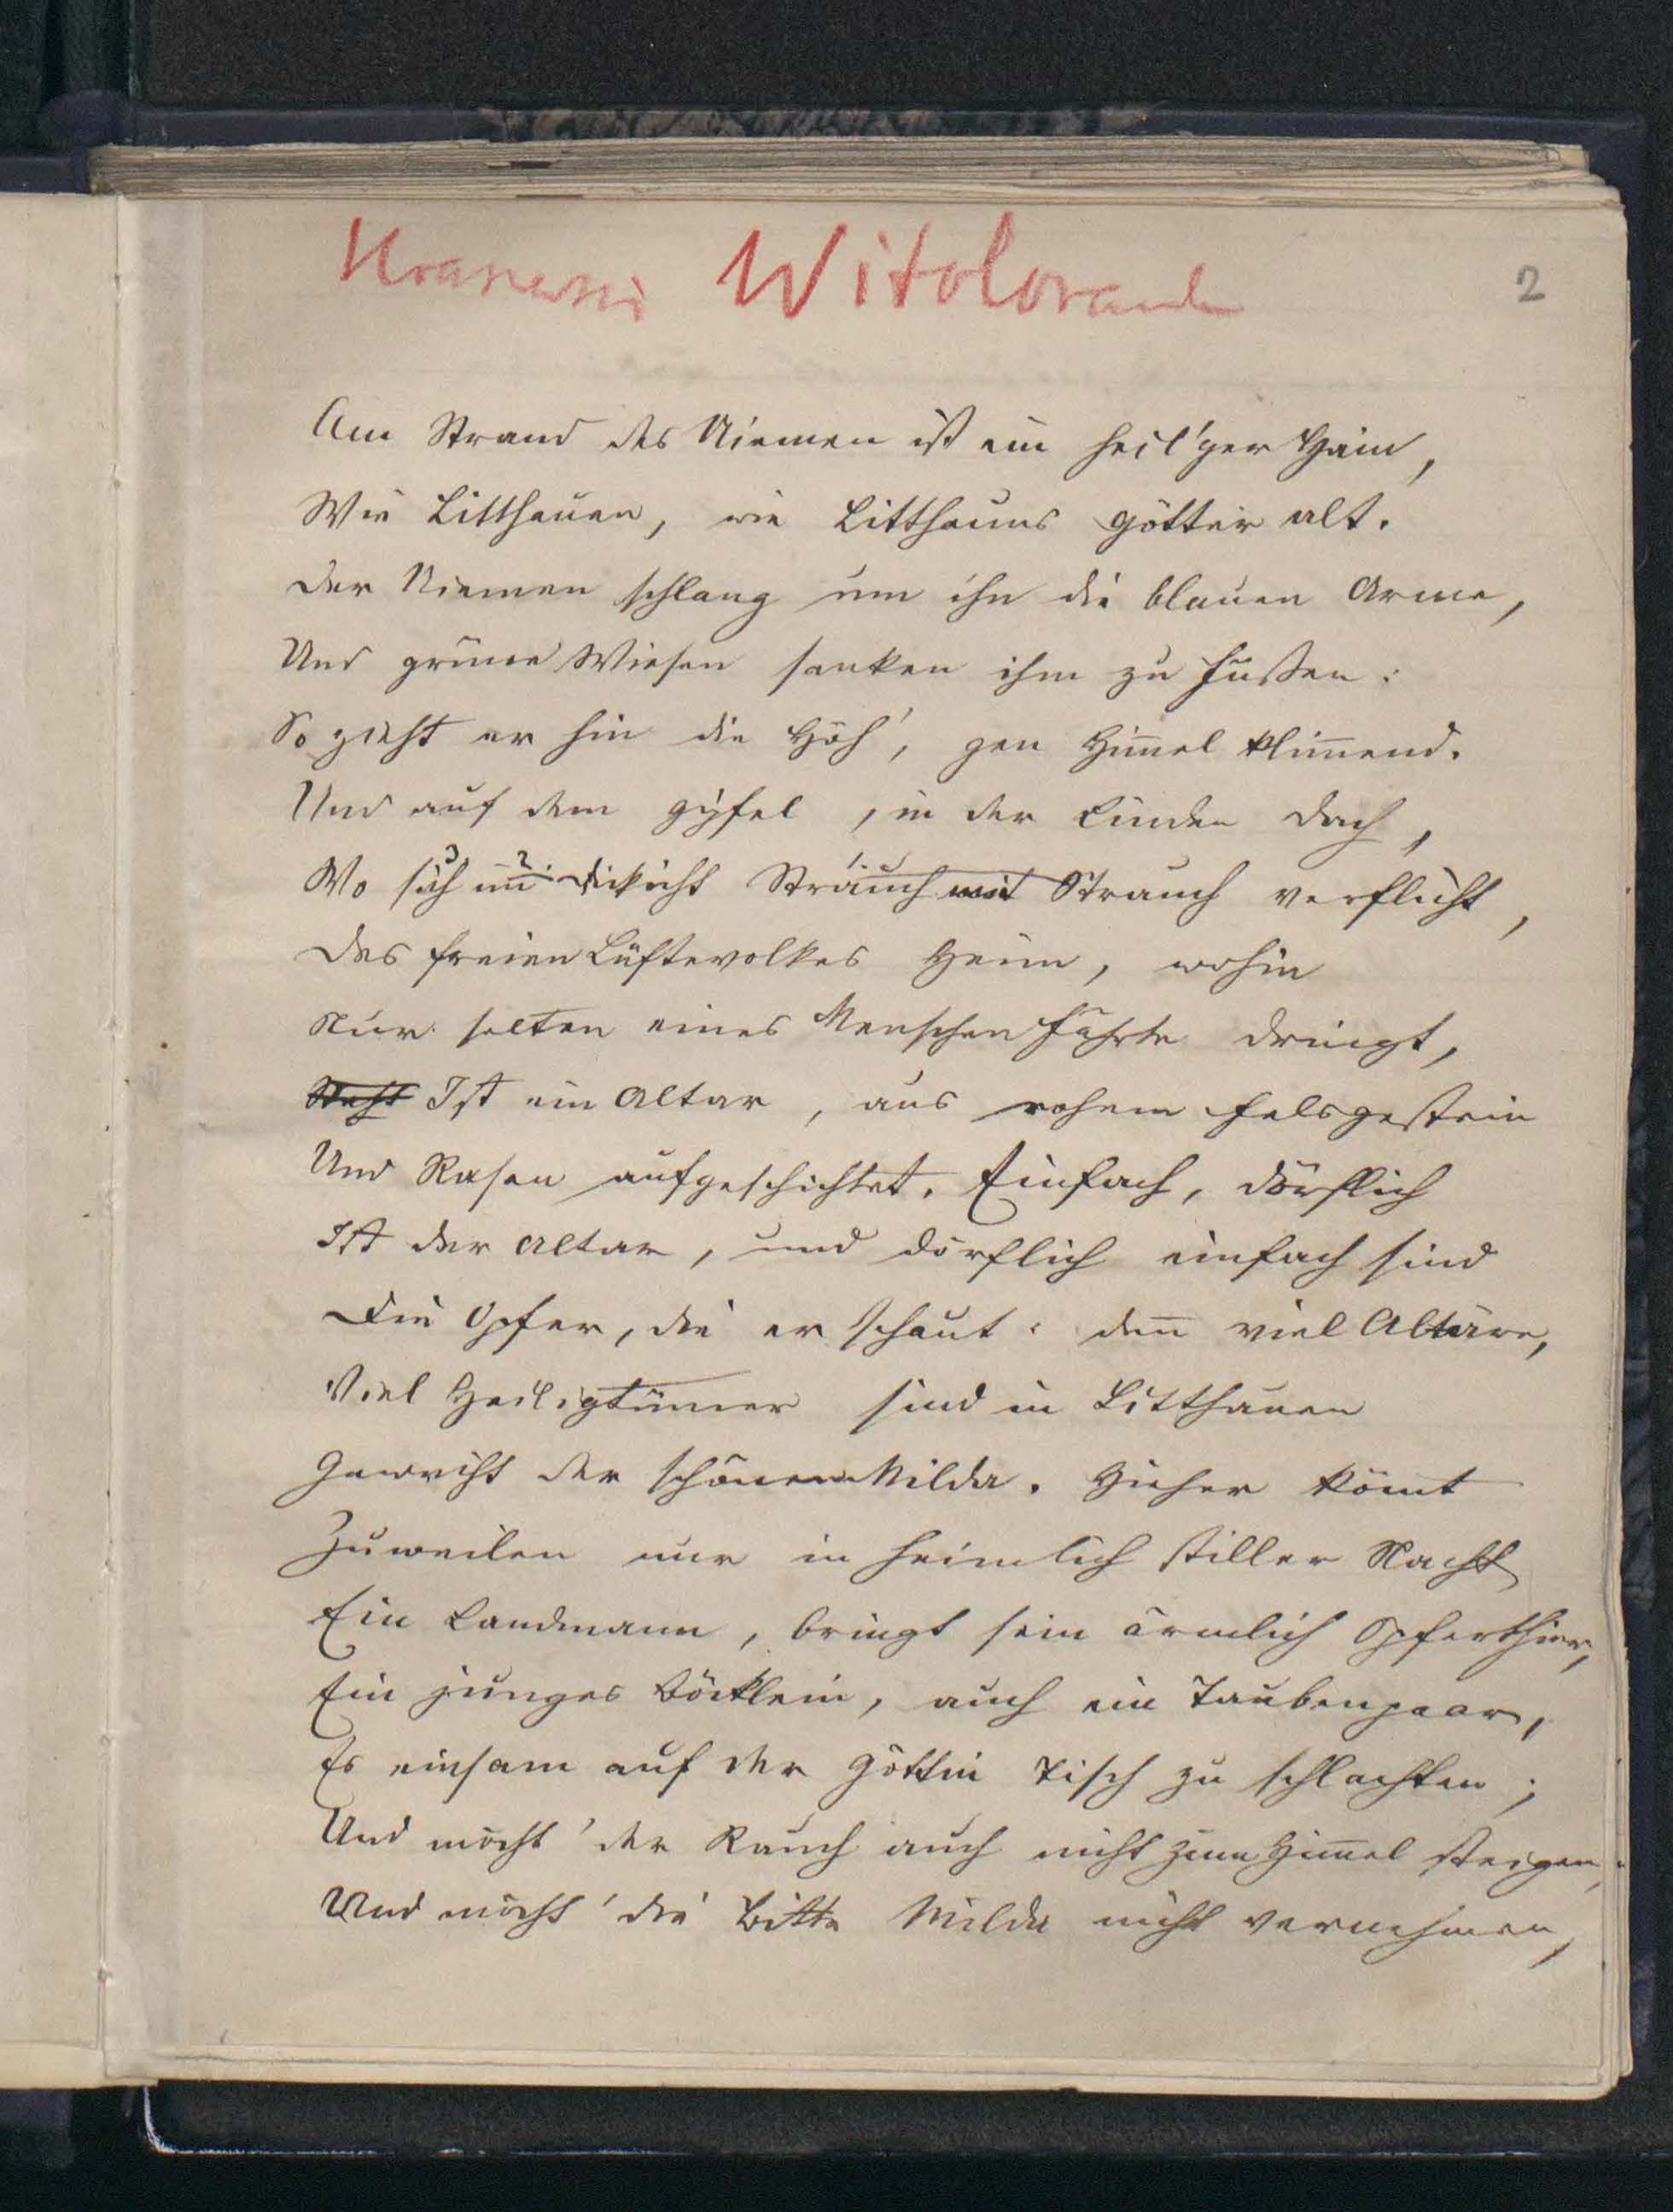 Kraszewski Witoloraude
2
Am Strand des Niemen ist ein heil'ger Hain,
Wie Litthauen, wie Litthauns Götter alt.
Der Niemen schlang um ihn die blauen Arme,
Und grüne Wiesen sanken ihm zu Füßen:
So zieht er hin die Höh', gen Him̅el klim̅end.
Und auf dem Gipfel, in der Linden Dach,
Wo sich im Dickicht Strauch mit Strauch verflicht,
Des freien Lüftevolkes Heim, wohin
Nur selten eines Menschen Fährte dringt,
Steht Ist ein Altar, aus rohem Felsgestein
Und Rasen aufgeschichtet. Einfach, dörflich
Ist der Altar, und dörflich einfach sind
Die Opfer, die er schaut: den̅ viel Altäre,
Viel Heiligtümer sind in Litthauen
Geweiht der schönen Milda. Hieher kom̅t
Zuweilen nur in heimlich stiller Nacht
Ein Landmann, bringt sein ärmlich Opferthier,
Ein junges Böcklein, auch ein Taubenpaar,
Es einsam auf der Göttin Tisch zu schlachten;
Und möcht' der Rauch auch nicht zum Him̅el steigen,
Und möcht' die Bitte Milda nicht vernehmen,